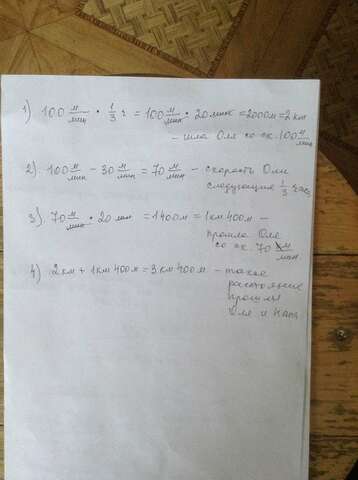 1) 100 м/мин · 1/3 ч = 100 м/мин · 20 мин = 2000 м = 2 км
- шла Оля со ск. 100 м/мин
2) 100 м/мин - 30 м/мин = 70 м/мин - скорость Оли
следующие 1/3 часа
3) 70 м/мин · 20 мин = 1400 м = 1 км 400 м -
прошла Оля
со ск. 70 м/мин
4) 2 км + 1 км 400 м = 3 км 400 м - такое
расстояние
прошли
Оля и Катя